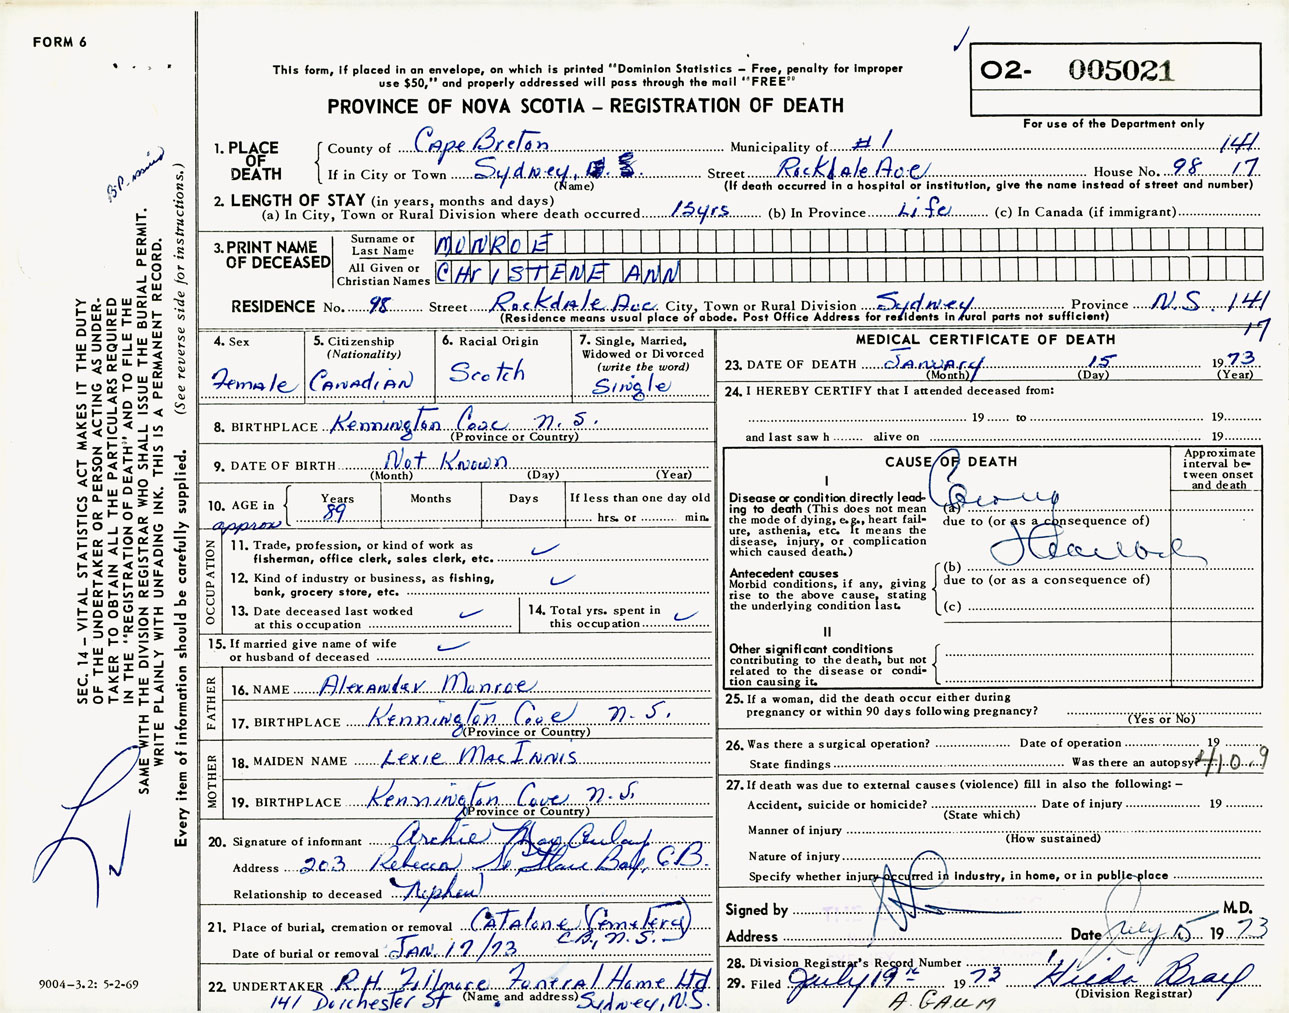 FORM 6
This form, if placed in an envelope, on which is printed "Dominion Statistics – Free, penalty for improper
use $50," and properly addressed will pass through the mail "FREE"
PROVINCE OF NOVA SCOTIA – REGISTRATION OF DEATH
O2- 005021
For use of the Department only
SEC. 14 – VITAL STATISTICS ACT MAKES IT THE DUTY
OF THE UNDERTAKER OR PERSON ACTING AS UNDER-
TAKER TO OBTAIN ALL THE PARTICULARS REQUIRED
IN THE "REGISTRATION OF DEATH" AND TO FILE THE
SAME WITH THE DIVISION REGISTRAR WHO SHALL ISSUE THE BURIAL PERMIT.
WRITE PLAINLY WITH UNFADING INK. THIS IS A PERMANENT RECORD.
Every item of information should be carefully supplied. (See reverse side for instructions.)
1. PLACE OF DEATH
County of Cape Breton Municipality of #1 141
If in City or Town Sydney, N.S. Street Rockdale Ave House No. 98 17
(Name) (If death occurred in a hospital or institution, give the name instead of street and number)
2. LENGTH OF STAY (in years, months and days)
(a) In City, Town or Rural Division where death occurred 15yrs (b) In Province Life (c) In Canada (if immigrant)
3. PRINT NAME OF DECEASED
Surname or Last Name MUNROE
All Given or Christian Names CHrISTENE ANN
RESIDENCE No. 98 Street Rockdale Ave City, Town or Rural Division Sydney Province N.S. 141
(Residence means usual place of abode. Post Office Address for residents in rural parts not sufficient) 17
4. Sex
Female
5. Citizenship
(Nationality)
CANADIAN
6. Racial Origin
Scotch
7. Single, Married,
Widowed or Divorced
(write the word)
Single
8. BIRTHPLACE Kennington Cove N.S.
(Province or Country)
9. DATE OF BIRTH Not Known
(Month) (Day) (Year)
10. AGE in
approx
Years
89
Months
Days
If less than one day old
hrs. or min.
OCCUPATION
11. Trade, profession, or kind of work as
fisherman, office clerk, sales clerk, etc. ✓
12. Kind of industry or business, as fishing,
bank, grocery store, etc. ✓
13. Date deceased last worked
at this occupation ✓
14. Total yrs. spent in
this occupation ✓
15. If married give name of wife
or husband of deceased ✓
FATHER
16. NAME Alexander Munroe
17. BIRTHPLACE Kennington Cove N.S.
(Province or Country)
MOTHER
18. MAIDEN NAME Lexie MacInnis
19. BIRTHPLACE Kennington Cove N.S.
(Province or Country)
20. Signature of informant Archie MacAulay
Address 203 Rebecca St Glace Bay, C.B.
Relationship to deceased Nephew
21. Place of burial, cremation or removal Catalone (Cemetery)
C.B., N.S.
Date of burial or removal JAN. 17/73
22. UNDERTAKER R.H. Fillmore Funeral Home Ltd
(Name and address)
141 Dorchester St Sydney, N.S.
MEDICAL CERTIFICATE OF DEATH
23. DATE OF DEATH January 15 1973
(Month) (Day) (Year)
24. I HEREBY CERTIFY that I attended deceased from:
19 to 19
and last saw h alive on 19
CAUSE OF DEATH
Approximate
interval be-
tween onset
and death
I
Disease or condition directly lead-
ing to death (This does not mean
the mode of dying, e.g., heart fail-
ure, asthenia, etc. It means the
disease, injury, or complication
which caused death.)
(a)
due to (or as a consequence of)
Antecedent causes
Morbid conditions, if any, giving
rise to the above cause, stating
the underlying condition last.
(b)
due to (or as a consequence of)
(c)
II
Other significant conditions
contributing to the death, but not
related to the disease or condi-
tion causing it.
25. If a woman, did the death occur either during
pregnancy or within 90 days following pregnancy?
(Yes or No)
26. Was there a surgical operation? Date of operation 19
State findings Was there an autopsy? 410.9
27. If death was due to external causes (violence) fill in also the following: –
Accident, suicide or homicide? Date of injury 19
(State which)
Manner of injury
(How sustained)
Nature of injury
Specify whether injury occurred in Industry, in home, or in public place
Signed by M.D.
Address Date July 5 1973
28. Division Registrar's Record Number
29. Filed July 19th 1973 Hilda Bray
(Division Registrar)
A. GAUM
9004-3.2: 5-2-69